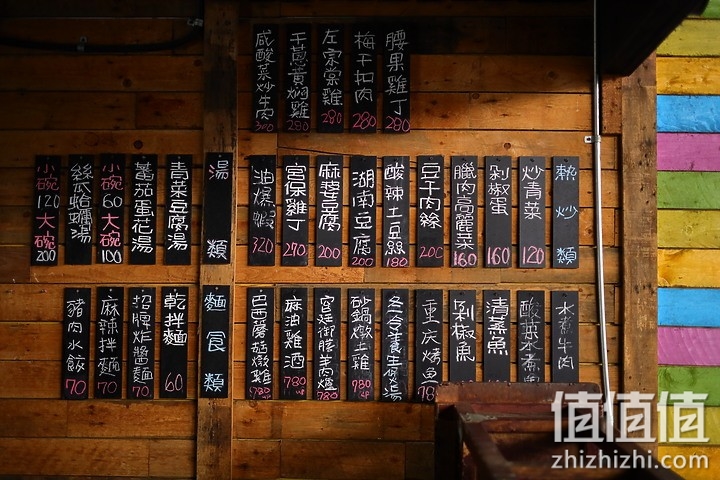 腰果雞丁 280
梅干扣肉 280
左宗棠雞 280
干蔥黃焖雞 280
咸酸菜炒牛肉 300
熱炒類
炒青菜 120
剁椒蛋 160
臘肉高麗菜 160
豆干肉絲 200
酸辣土豆絲 180
湖南豆腐 200
麻婆豆腐 200
宮保雞丁 270
油爆蝦 320
湯類
青菜豆腐湯
蕃茄蛋花湯
小碗60 大碗100
絲瓜蛤蠣湯
小碗120 大碗200
水煮牛肉
酸菜水煮魚
清蒸魚
剁椒魚
重庆烤鱼 780
砂鍋燉土雞 980
麻油雞酒 780
巴西蘑菇燉雞 780
麵食類
乾拌麵 60
招牌炸醬麵 70
麻辣拌麵 70
豬肉水餃 70
值值值
zhizhizhi.com